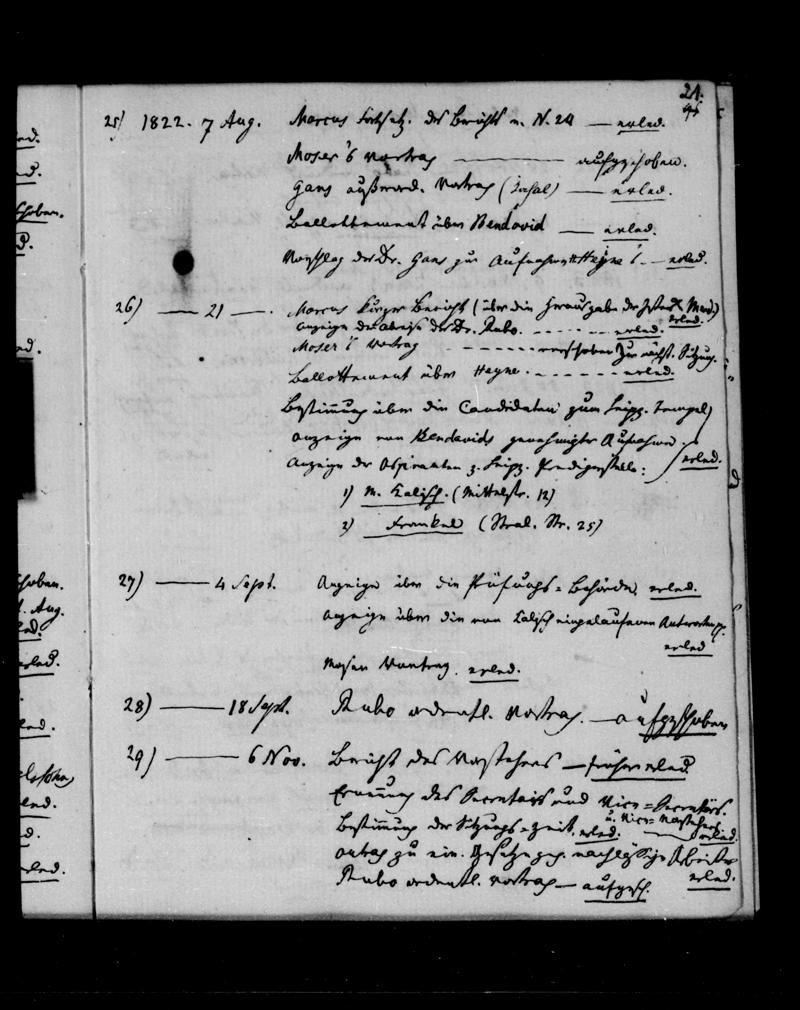 21.
25) 1822. 7 Aug. Marcus Fortsetz. des Berichts v. N. 24 — erled.
Moser's Vortrag — aufgeschoben.
Gans außerord. Vortrag — erled.
Ballottement über Bendavid — erled.
Vorschlag des Dr. Gans zur Aufnahme Heyne's. — erled.
26) — 21 —. Marcus kurzer Bericht (über die Herausgabe der
erled.
Anzeige der Abreise des Dr. Rubo. - - - - - erled.
Moser's Vortrag - - - - - verschoben zur nächst. Sitzung.
Ballottement über Heyne. - - - - - erled.
Bestimmung über die Candidaten zum Leipz. Tempel
Anzeige von Bendavids genehmigter Aufnahme.
Anzeige der Aspiranten z. Leipz. Predigerstelle: erled.
1) M. Kalisch. (Mittelstr. 12)
2) Frankel (Stral. Str. 25)
27) — 4 Sept. Anzeige über die Prüfungs=Behörde, erled.
Anzeige über die von Kalisch eingelaufenen Antworten
erled
Moser Vortrag. erled.
28) — 18 Sept. Rubo ordentl. Vortrag. — aufgeschoben
29) — 6 Nov. Bericht des Vorstehers — früher erled.
Ernennung des Secretairs und Vice=Secretärs.
u. Vice=Vorstehers
Bestimmung der Sitzungs=zeit. erled. — erled.
Antrag zu ein. Gesetze geg. nachlässige Arbeiter
erled.
Rubo ordentl. Vortrag — aufgesch.
schoben.
Aug.
erled.